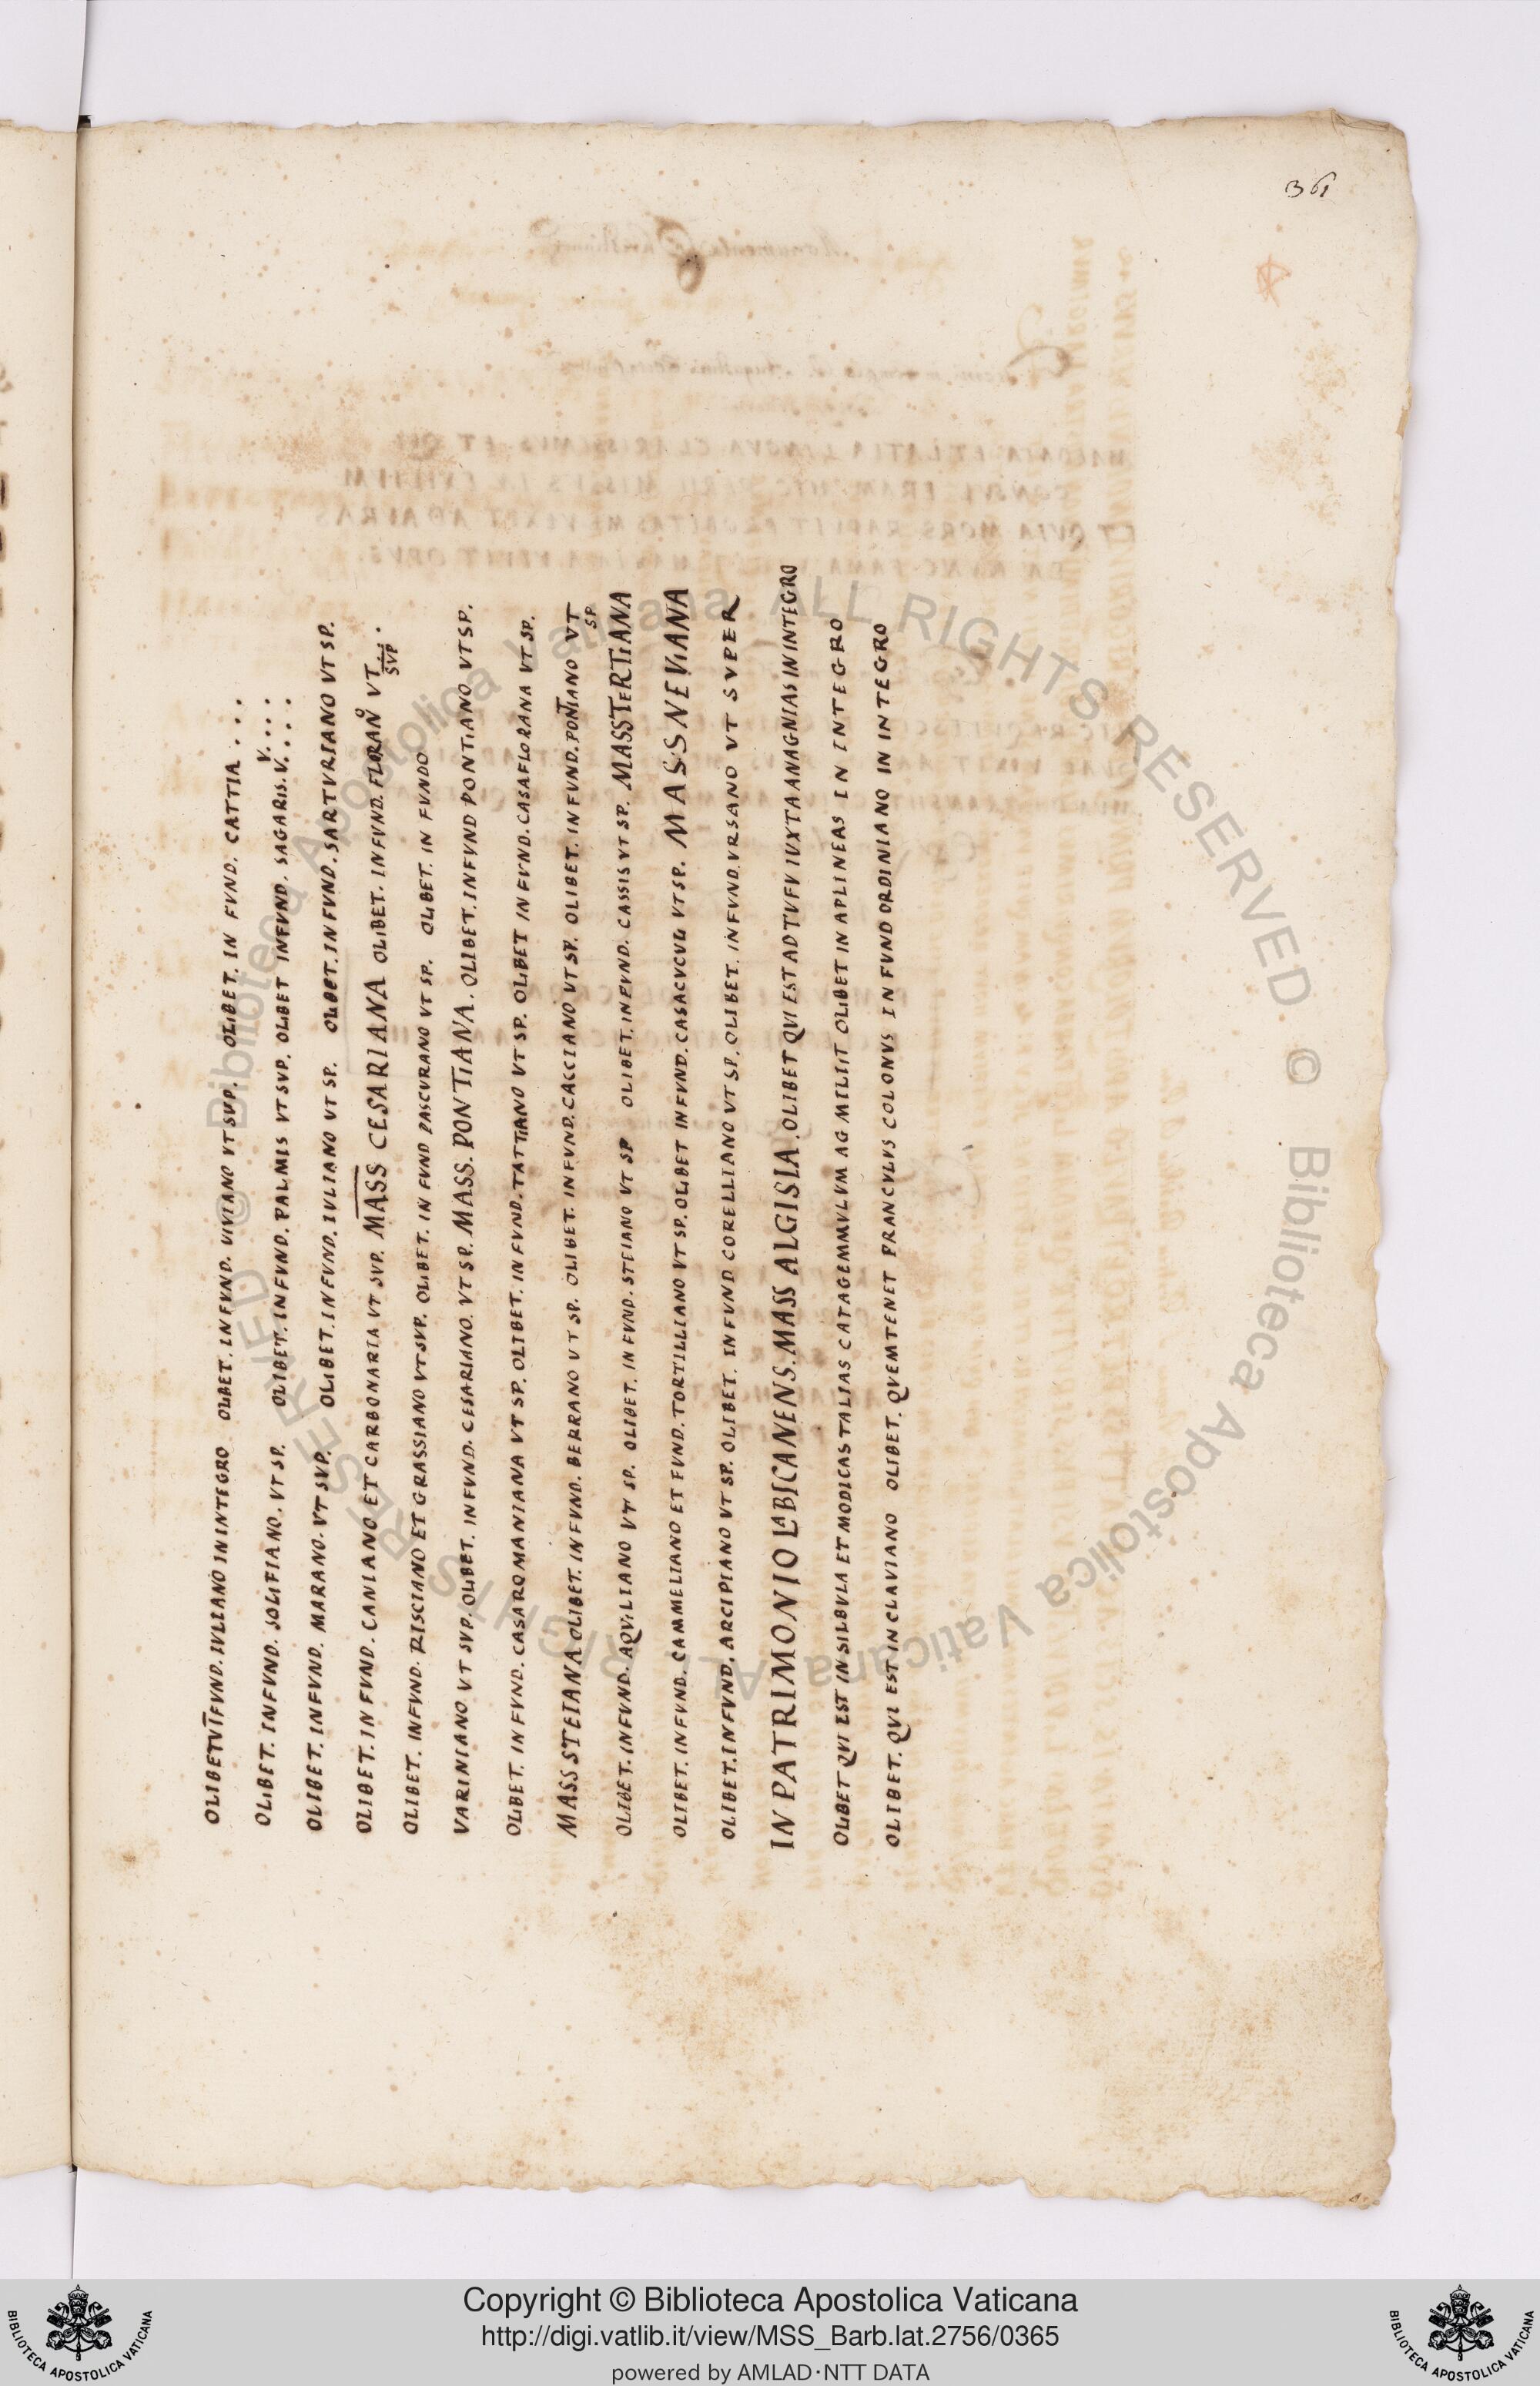 361
OLIBETVT FVND. IVLIANO IN INTEGRO OLIBET. IN FVND. VIVIANO VT SVP. OLIBET. IN FVND. CATTIA . . .
OLIBET. IN FVND. SOLIFIANO. VT SP. OLIBET. IN FVND. PALMIS VT SVP. OLIBET IN FVND. SAGARIS. V. . . .
V . . .
OLIBET. IN FVND. MARANO. VT SVP. OLIBET. IN FVND. IVLIANO VT SP. OLIBET. IN FVND. SARTVRIANO VT SP.
OLIBET. IN FVND. CANIANO ET CARBONARIA VT SVP. MASS CESARIANA OLIBET. IN FVND. FLORANO VT . . .
SVP
OLIBET. IN FVND. RISCIANO ET GRASSIANO VT SVP. OLIBET. IN FVND PASCVRANO VT SP. OLIBET. IN FVNDO
VARINIANO VT SVP. OLIBET. IN FVND. CESARIANO. VT SP. MASS. PONTIANA. OLIBET. IN FVND PONTIANO VT SP.
OLIBET. IN FVND. CASAROMANIANA VT SP. OLIBET. IN FVND. TATTIANO VT SP. OLIBET IN FVND. CASAFLORANA VT SP.
MASS STEIANA OLIBET. IN FVND. BERRANO VT SP. OLIBET. IN FVND. CACCIANO VT SP. OLIBET. IN FVND. PONTIANO VT
SP.
OLIBET. IN FVND. AQVILIANO VT SP. OLIBET. IN FVND. STEIANO VT SP OLIBET. IN FVND. CASSIS VT SP. MASS TERTIANA
OLIBET. IN FVND. CAMMELIANO ET FVND. TORTILLIANO VT SP. OLIBET IN FVND. CASACVCVLI VT SP. MAS.S NEVIANA
OLIBET. IN FVND. ARCIPIANO VT SP. OLIBET. IN FVND CORELLIANO VT SP. OLIBET. IN FVND. VRSANO VT SVPER
IN PATRIMONIO LABICANENS. MASS ALGISIA. OLIBET QVI EST AD TVFV IVXTA ANAGNIAS IN INTEGRO
OLIBET QVI EST IN SILBVLA ET MODICAS TALIAS CATAGEMMVLVM AG MILIIT OLIBET IN APLINEAS IN INTEGRO
OLIBET. QVI EST IN CLAVIANO OLIBET. QVEM TENET FRANCVLVS COLONVS IN FVND ORDINIANO IN INTEGRO
Biblioteca Apostolica Vaticana ALL RIGHTS RESERVED © Biblioteca Apostolica Vaticana ALL RIGHTS RESERVED ©
BIBLIOTECA APOSTOLICA VATICANA
Copyright © Biblioteca Apostolica Vaticana
http://digi.vatlib.it/view/MSS_Barb.lat.2756/0365
powered by AMLAD·NTT DATA
BIBLIOTECA APOSTOLICA VATICANA